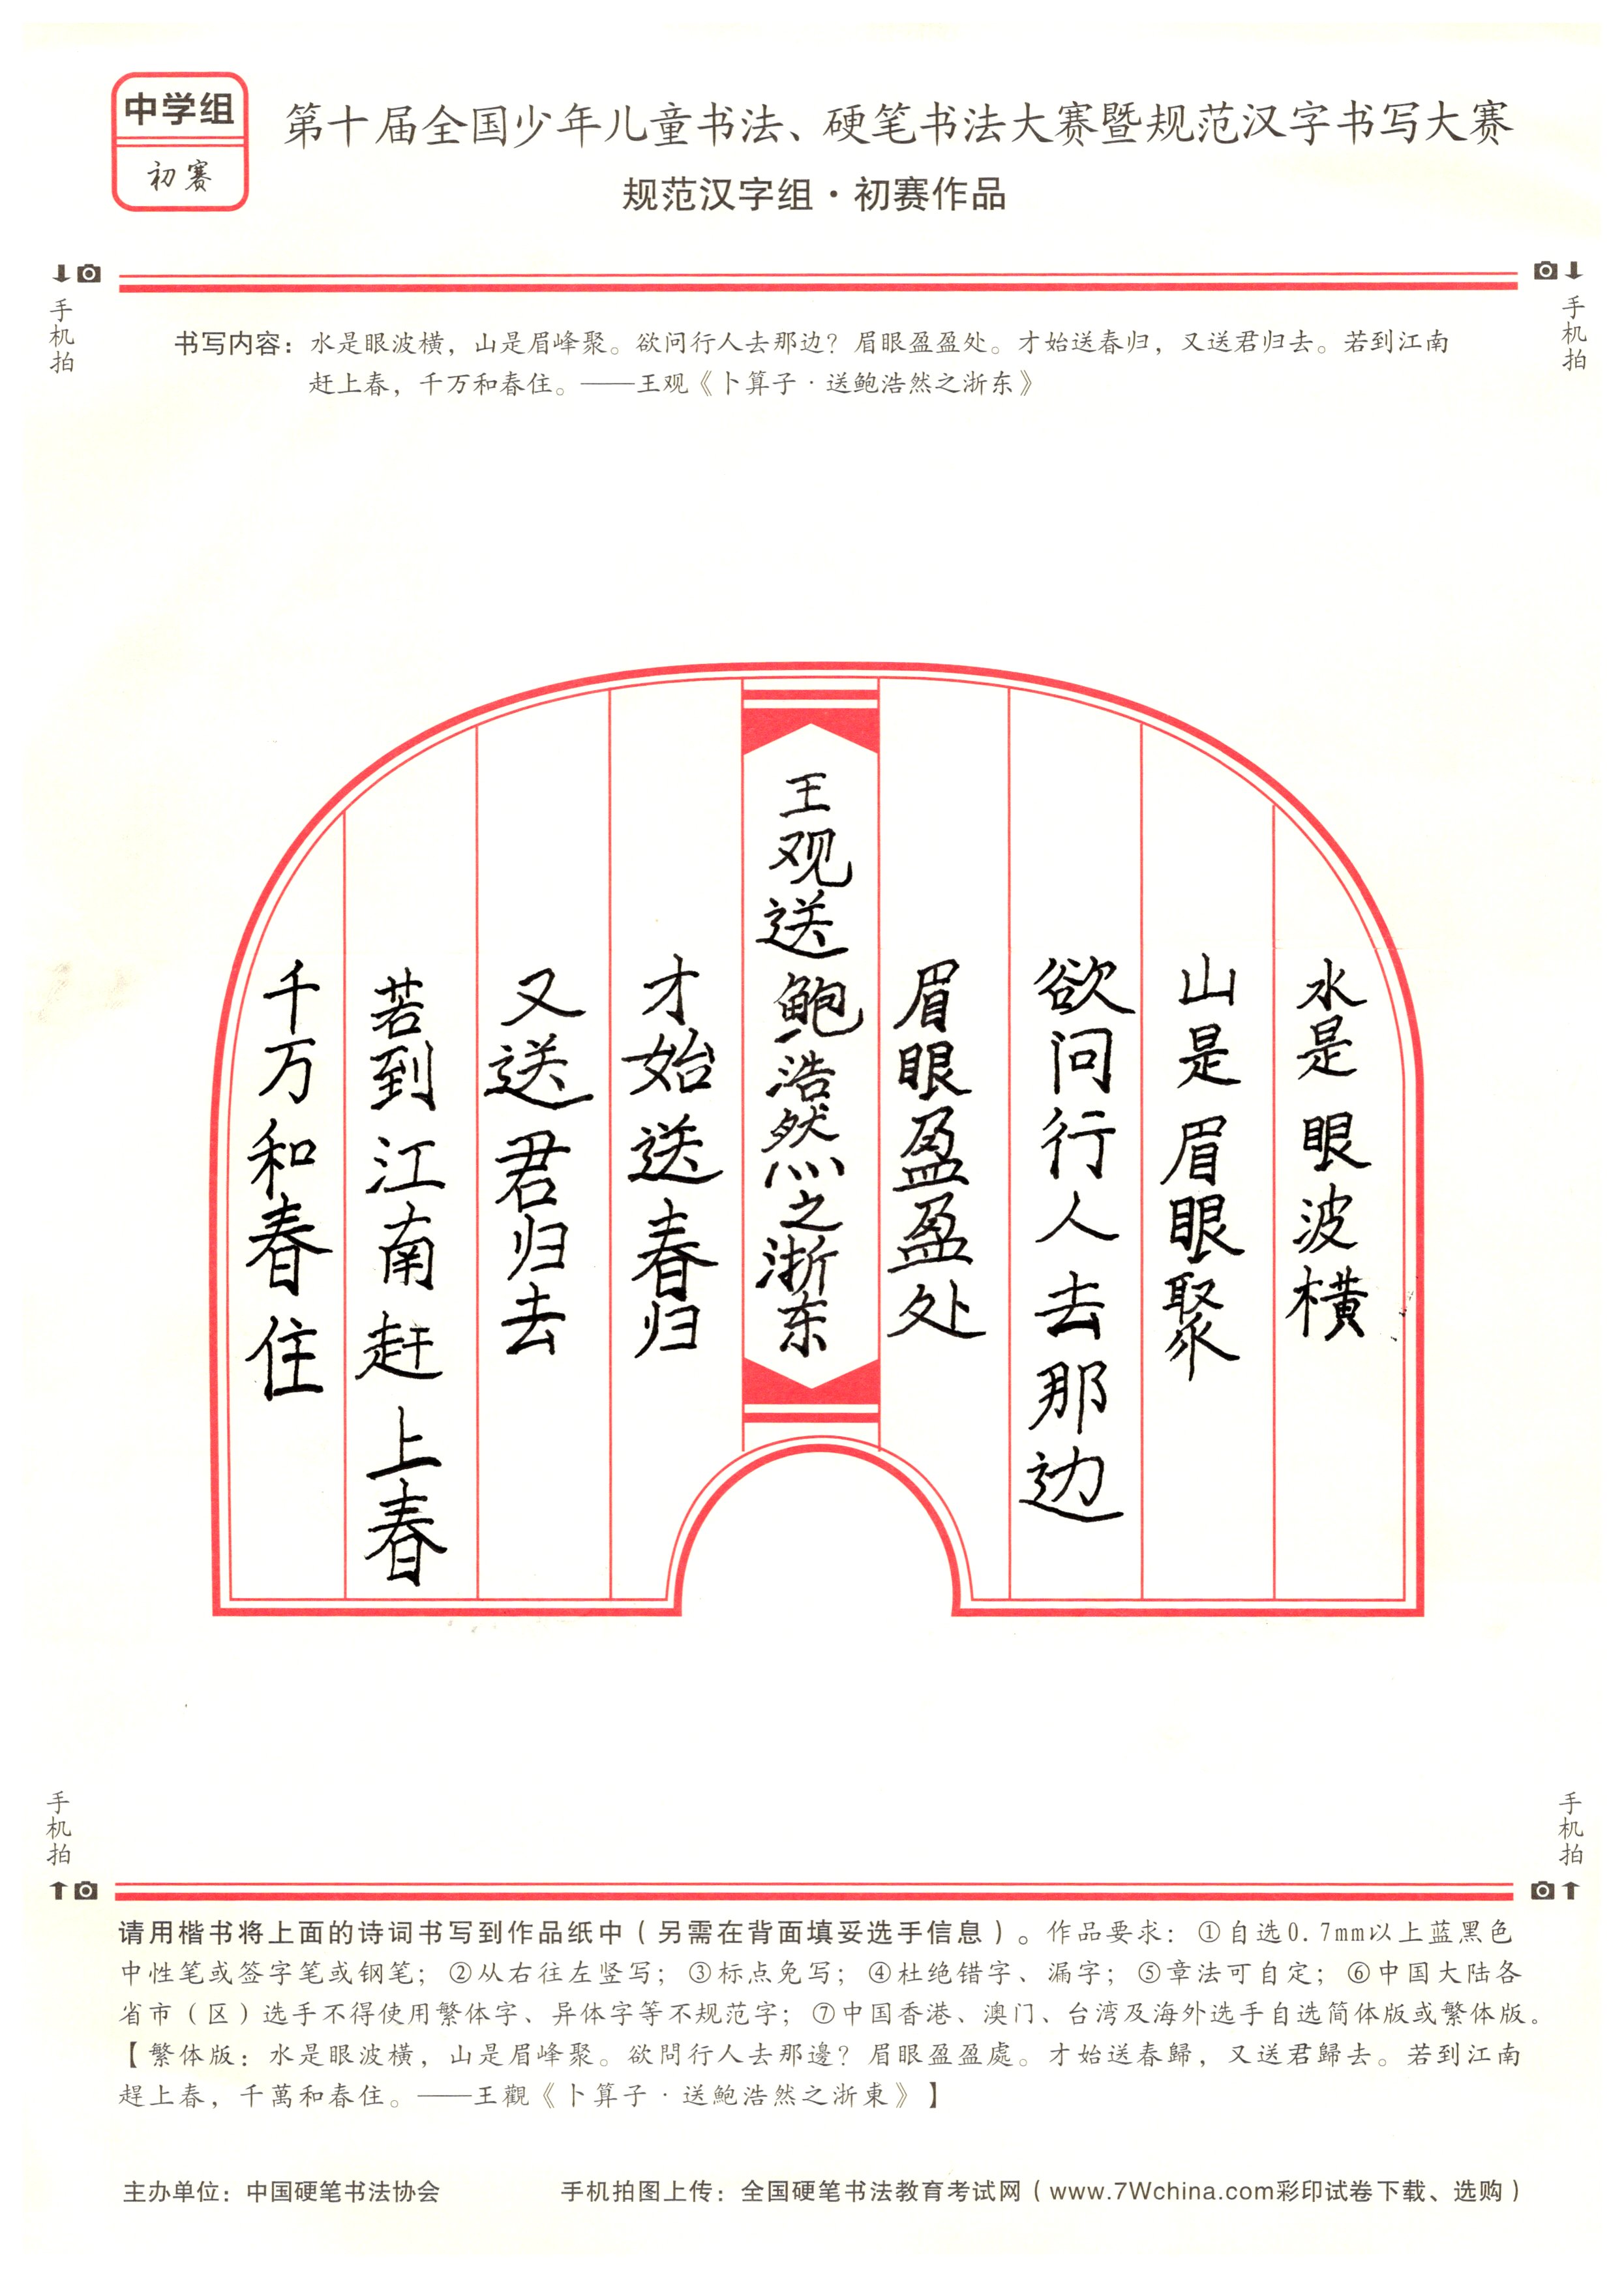 中学组
初赛
第十届全国少年儿童书法、硬笔书法大赛暨规范汉字书写大赛
规范汉字组·初赛作品
手机拍
手机拍
书写内容：水是眼波横，山是眉峰聚。欲问行人去那边？眉眼盈盈处。才始送春归，又送君归去。若到江南
赶上春，千万和春住。——王观《卜算子·送鲍浩然之浙东》
水是眼波横
山是眉眼聚
欲问行人去那边
眉眼盈盈处
王观送鲍浩然之浙东
才始送春归
又送君归去
若到江南赶上春
千万和春住
手机拍
手机拍
请用楷书将上面的诗词书写到作品纸中（另需在背面填妥选手信息）。作品要求：①自选0.7mm以上蓝黑色
中性笔或签字笔或钢笔；②从右往左竖写；③标点免写；④杜绝错字、漏字；⑤章法可自定；⑥中国大陆各
省市（区）选手不得使用繁体字、异体字等不规范字；⑦中国香港、澳门、台湾及海外选手自选简体版或繁体版。
【繁体版：水是眼波橫，山是眉峰聚。欲問行人去那邊？眉眼盈盈處。才始送春歸，又送君歸去。若到江南
趕上春，千萬和春住。——王觀《卜算子·送鮑浩然之浙東》】
主办单位：中国硬笔书法协会 手机拍图上传：全国硬笔书法教育考试网（www.7Wchina.com彩印试卷下载、选购）